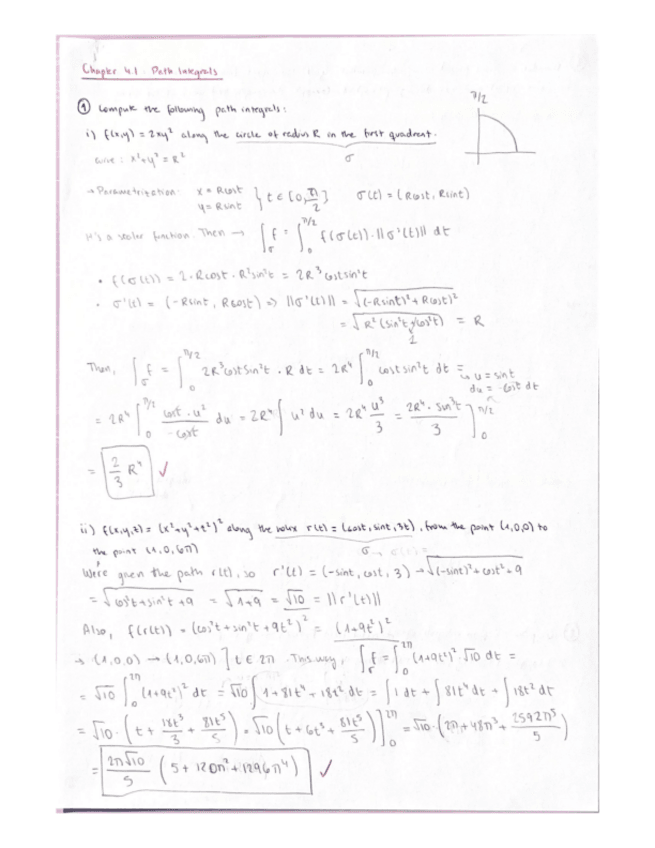 Chapter 4.1. Path Integrals
① Compute the following path integrals:
π/2
i) f(x,y) = 2xy² along the circle of radius R in the first quadrant.
curve: x²+y² = R²
σ
→ Parametrization: x = Rcost
y = Rsint } t ∈ [0, π/2] σ(t) = (Rcost, Rsint)
It's a scalar function. Then → ∫_σ f = ∫_0^{π/2} f(σ(t)) · ||σ'(t)|| dt
• f(σ(t)) = 2·Rcost·R²sin²t = 2R³ cost sin²t
• σ'(t) = (-Rsint, Rcost) => ||σ'(t)|| = √((-Rsint)² + Rcost)²
= √(R²(sin²t + cos²t)) = R
1
Then, ∫_σ f = ∫_0^{π/2} 2R³cost sin²t · R dt = 2R⁴ ∫_0^{π/2} cost sin²t dt =
↳ u = sint
du = -cost dt
= 2R⁴ ∫_0^{π/2} cost·u² / -cost du = 2R⁴ ∫ u² du = 2R⁴ u³/3 = 2R⁴·sin³t / 3 ]_0^{π/2}
= 2/3 R⁴ ✓
ii) f(x,y,z) = (x²+y²+z²)² along the helix r(t) = (cost, sint, 3t), from the point (1,0,0) to
the point (1,0,6π)
We're given the path r(t), so r'(t) = (-sint, cost, 3) → √((-sint)² + cost² + 9
= √(cos²t + sin²t + 9) = √(1+9) = √10 = ||r'(t)||
Also, f(r(t)) = (cos²t + sin²t + 9t²)² = (1+9t²)²
→ (1,0,0) → (1,0,6π) ] t ∈ 2π. This way, ∫_σ f = ∫_0^{2π} (1+9t²)² √10 dt =
= √10 ∫_0^{2π} (1+9t²)² dt = √10 ∫ 1 + 81t⁴ + 18t² dt = ∫ 1 dt + ∫ 81t⁴ dt + ∫ 18t² dt
= √10 · (t + 18t³/3 + 81t⁵/5) = √10 (t + 6t³ + 81t⁵/5) ]_0^{2π} = √10 · (2π + 48π³ + 2592π⁵/5)
= 2π√10/5 (5 + 120π² + 1296π⁴) ✓